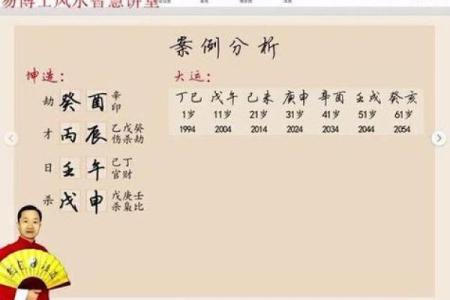 易博士风水智慧讲堂
案例分析
坤造：
劫 癸酉 辛印
才 丙辰 乙戊癸 伤杀劫
日 壬午 己丁 官财
杀 戊申 戊庚壬 杀枭比
大运：
丁巳 戊午 己未 庚申 辛酉 壬戌 癸亥
1岁 11岁 21岁 31岁 41岁 51岁 61岁
1994 2004 2014 2024 2034 2044 2054